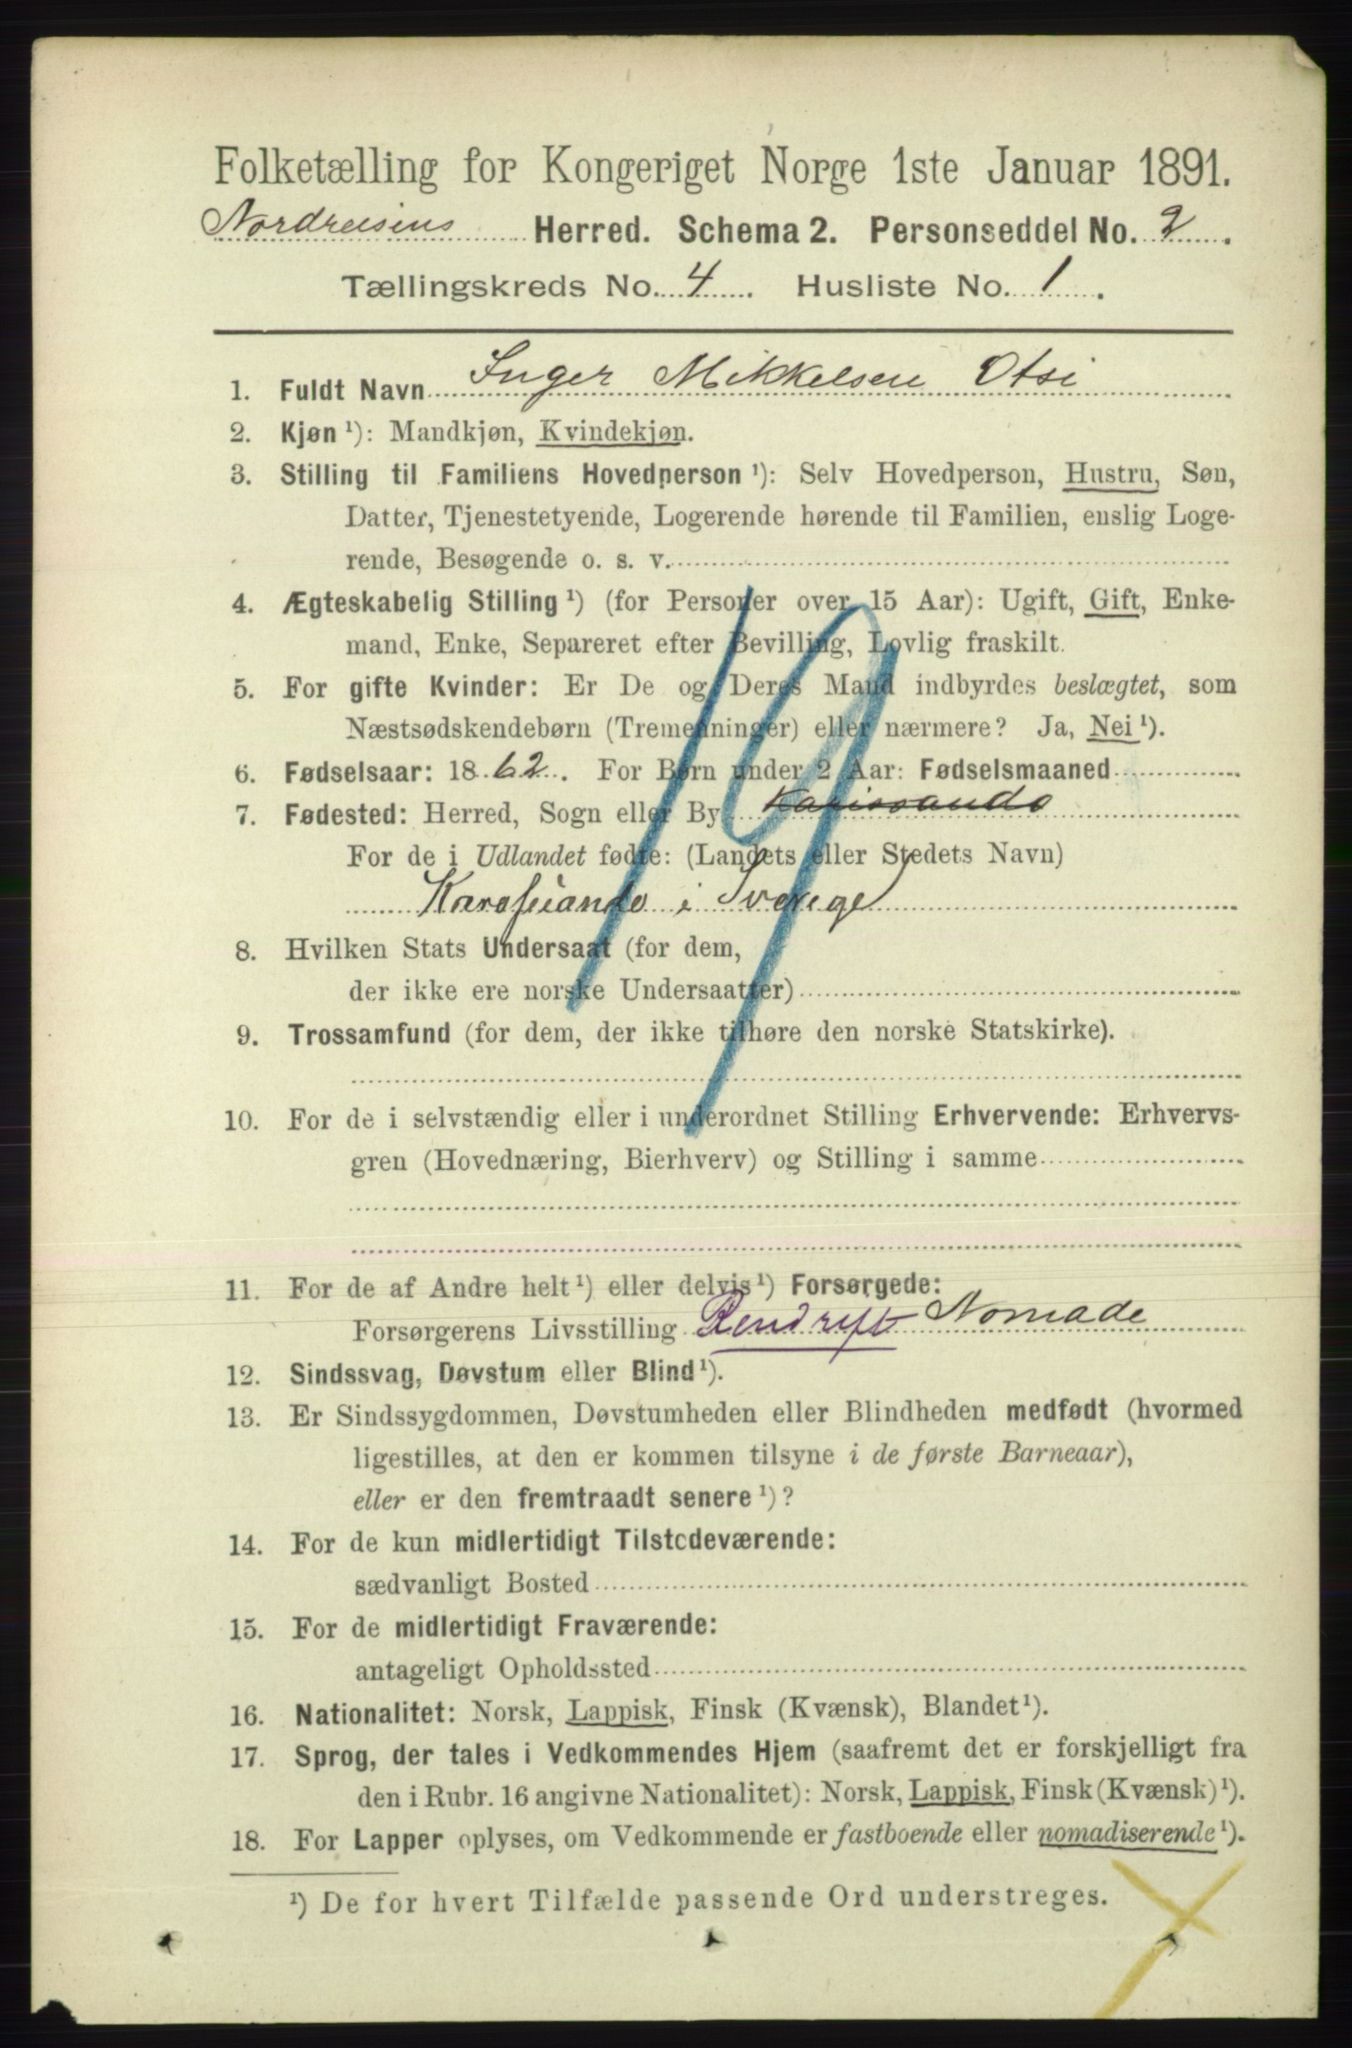 Folketælling for Kongeriget Norge 1ste Januar 1891.
Nordreisens Herred. Schema 2. Personseddel No. 2.
Tællingskreds No. 4. Husliste No. 1.
1. Fuldt Navn Inger Mikkelsen Otsi
2. Kjøn ¹): Mandkjøn, Kvindekjøn.
3. Stilling til Familiens Hovedperson ¹): Selv Hovedperson, Hustru, Søn,
Datter, Tjenestetyende, Logerende hørende til Familien, enslig Loge-
rende, Besøgende o. s. v.
4. Ægteskabelig Stilling ¹) (for Personer over 15 Aar): Ugift, Gift, Enke-
mand, Enke, Separeret efter Bevilling, Lovlig fraskilt.
5. For gifte Kvinder: Er De og Deres Mand indbyrdes beslægtet, som
Næstsødskendebørn (Tremenninger) eller nærmere? Ja, Nei ¹).
6. Fødselsaar: 1862. For Børn under 2 Aar: Fødselsmaaned
7. Fødested: Herred, Sogn eller By
For de i Udlandet fødte: (Landets eller Stedets Navn)
i Sverige
8. Hvilken Stats Undersaat (for dem,
der ikke ere norske Undersaatter)
9. Trossamfund (for dem, der ikke tilhøre den norske Statskirke).
10. For de i selvstændig eller i underordnet Stilling Erhvervende: Erhvervs-
gren (Hovednæring, Bierhverv) og Stilling i samme
11. For de af Andre helt ¹) eller delvis ¹) Forsørgede:
Forsørgerens Livsstilling Rendrift Nomade
12. Sindssvag, Døvstum eller Blind ¹).
13. Er Sindssygdommen, Døvstumheden eller Blindheden medfødt (hvormed
ligestilles, at den er kommen tilsyne i de første Barneaar),
eller er den fremtraadt senere ¹)?
14. For de kun midlertidigt Tilstedeværende:
sædvanligt Bosted
15. For de midlertidigt Fraværende:
antageligt Opholdssted
16. Nationalitet: Norsk, Lappisk, Finsk (Kvænsk), Blandet ¹).
17. Sprog, der tales i Vedkommendes Hjem (saafremt det er forskjelligt fra
den i Rubr. 16 angivne Nationalitet): Norsk, Lappisk, Finsk (Kvænsk) ¹).
18. For Lapper oplyses, om Vedkommende er fastboende eller nomadiserende ¹).
¹) De for hvert Tilfælde passende Ord understreges.
19